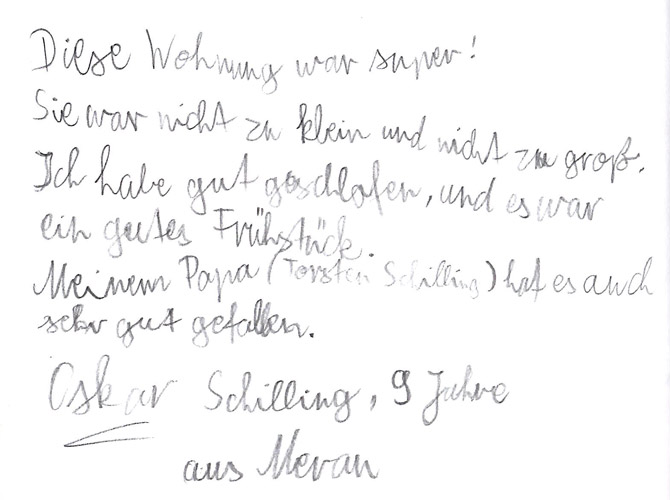 Diese Wohnung war super!
Sie war nicht zu klein und nicht zu groß.
Ich habe gut geschlafen, und es war
ein gutes Frühstück.
Meinem Papa (Torsten Schilling) hat es auch
sehr gut gefallen.
Oskar Schilling, 9 Jahre
aus Meran